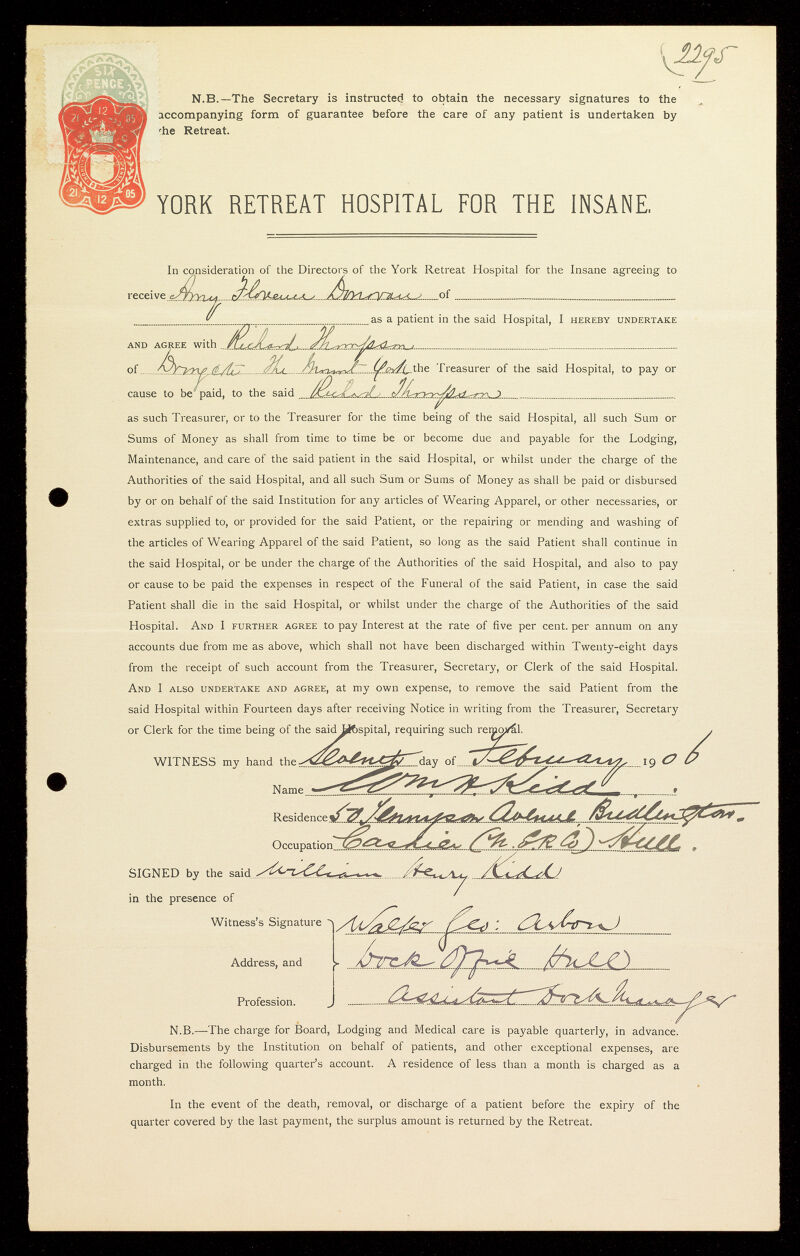 2295
SIX
PENCE
21 12 05
21 12 05
N.B.—The Secretary is instructed to obtain the necessary signatures to the
accompanying form of guarantee before the care of any patient is undertaken by
the Retreat.
YORK RETREAT HOSPITAL FOR THE INSANE.
In consideration of the Directors of the York Retreat Hospital for the Insane agreeing to
receive Amy Florence Donovan of
as a patient in the said Hospital, I HEREBY UNDERTAKE
AND AGREE with Richard Thompson
of Dringcote The Mount York the Treasurer of the said Hospital, to pay or
cause to be paid, to the said Richard Thompson
as such Treasurer, or to the Treasurer for the time being of the said Hospital, all such Sum or
Sums of Money as shall from time to time be or become due and payable for the Lodging,
Maintenance, and care of the said patient in the said Hospital, or whilst under the charge of the
Authorities of the said Hospital, and all such Sum or Sums of Money as shall be paid or disbursed
by or on behalf of the said Institution for any articles of Wearing Apparel, or other necessaries, or
extras supplied to, or provided for the said Patient, or the repairing or mending and washing of
the articles of Wearing Apparel of the said Patient, so long as the said Patient shall continue in
the said Hospital, or be under the charge of the Authorities of the said Hospital, and also to pay
or cause to be paid the expenses in respect of the Funeral of the said Patient, in case the said
Patient shall die in the said Hospital, or whilst under the charge of the Authorities of the said
Hospital. AND I FURTHER AGREE to pay Interest at the rate of five per cent. per annum on any
accounts due from me as above, which shall not have been discharged within Twenty-eight days
from the receipt of such account from the Treasurer, Secretary, or Clerk of the said Hospital.
AND I ALSO UNDERTAKE AND AGREE, at my own expense, to remove the said Patient from the
said Hospital within Fourteen days after receiving Notice in writing from the Treasurer, Secretary
or Clerk for the time being of the said Hospital, requiring such removal.
WITNESS my hand the Seventh day of February 1906
Name Wm. H. Kidd.
Residence 50 Tennyson Avenue Bridlington.
Occupation Cashier (N.E.R Co) Hull.
SIGNED by the said William Henry Kidd
in the presence of
Witness's Signature Walter Geo: Arbon
Address, and Dock Office Hull
Profession. Assistant Dock Manager
N.B.—The charge for Board, Lodging and Medical care is payable quarterly, in advance.
Disbursements by the Institution on behalf of patients, and other exceptional expenses, are
charged in the following quarter's account. A residence of less than a month is charged as a
month.
In the event of the death, removal, or discharge of a patient before the expiry of the
quarter covered by the last payment, the surplus amount is returned by the Retreat.